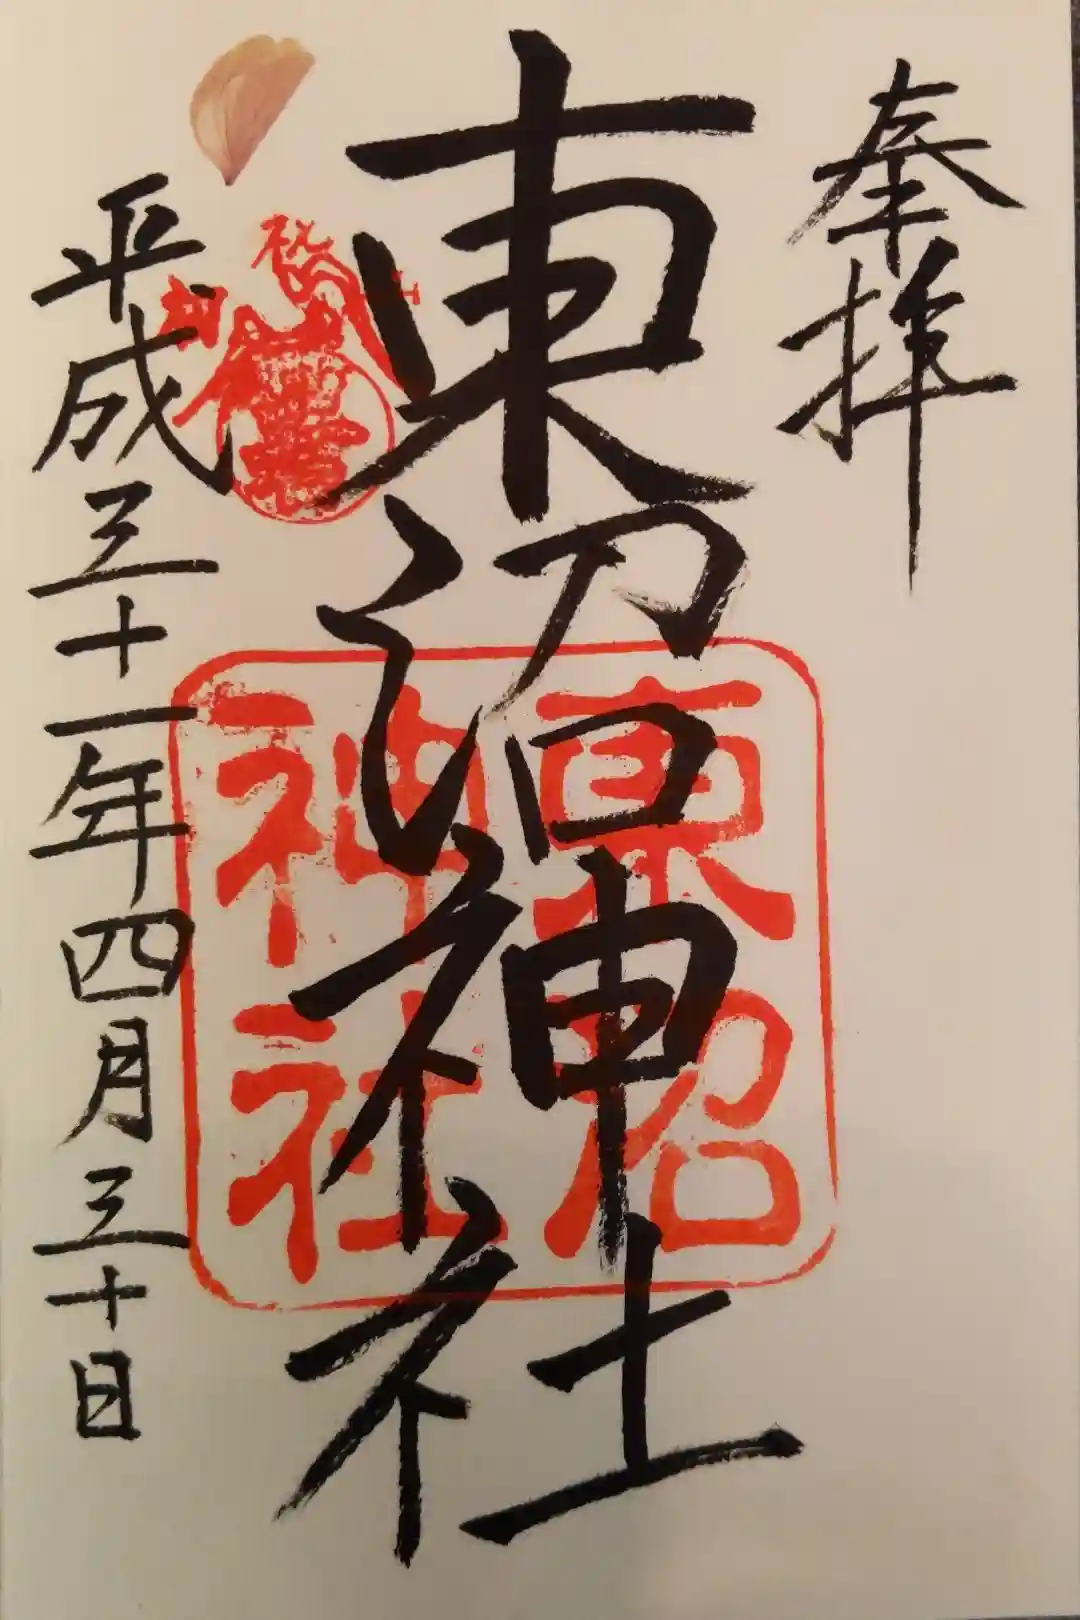 奉拝
東沼神社
東沼
神社
平成三十一年四月三十日